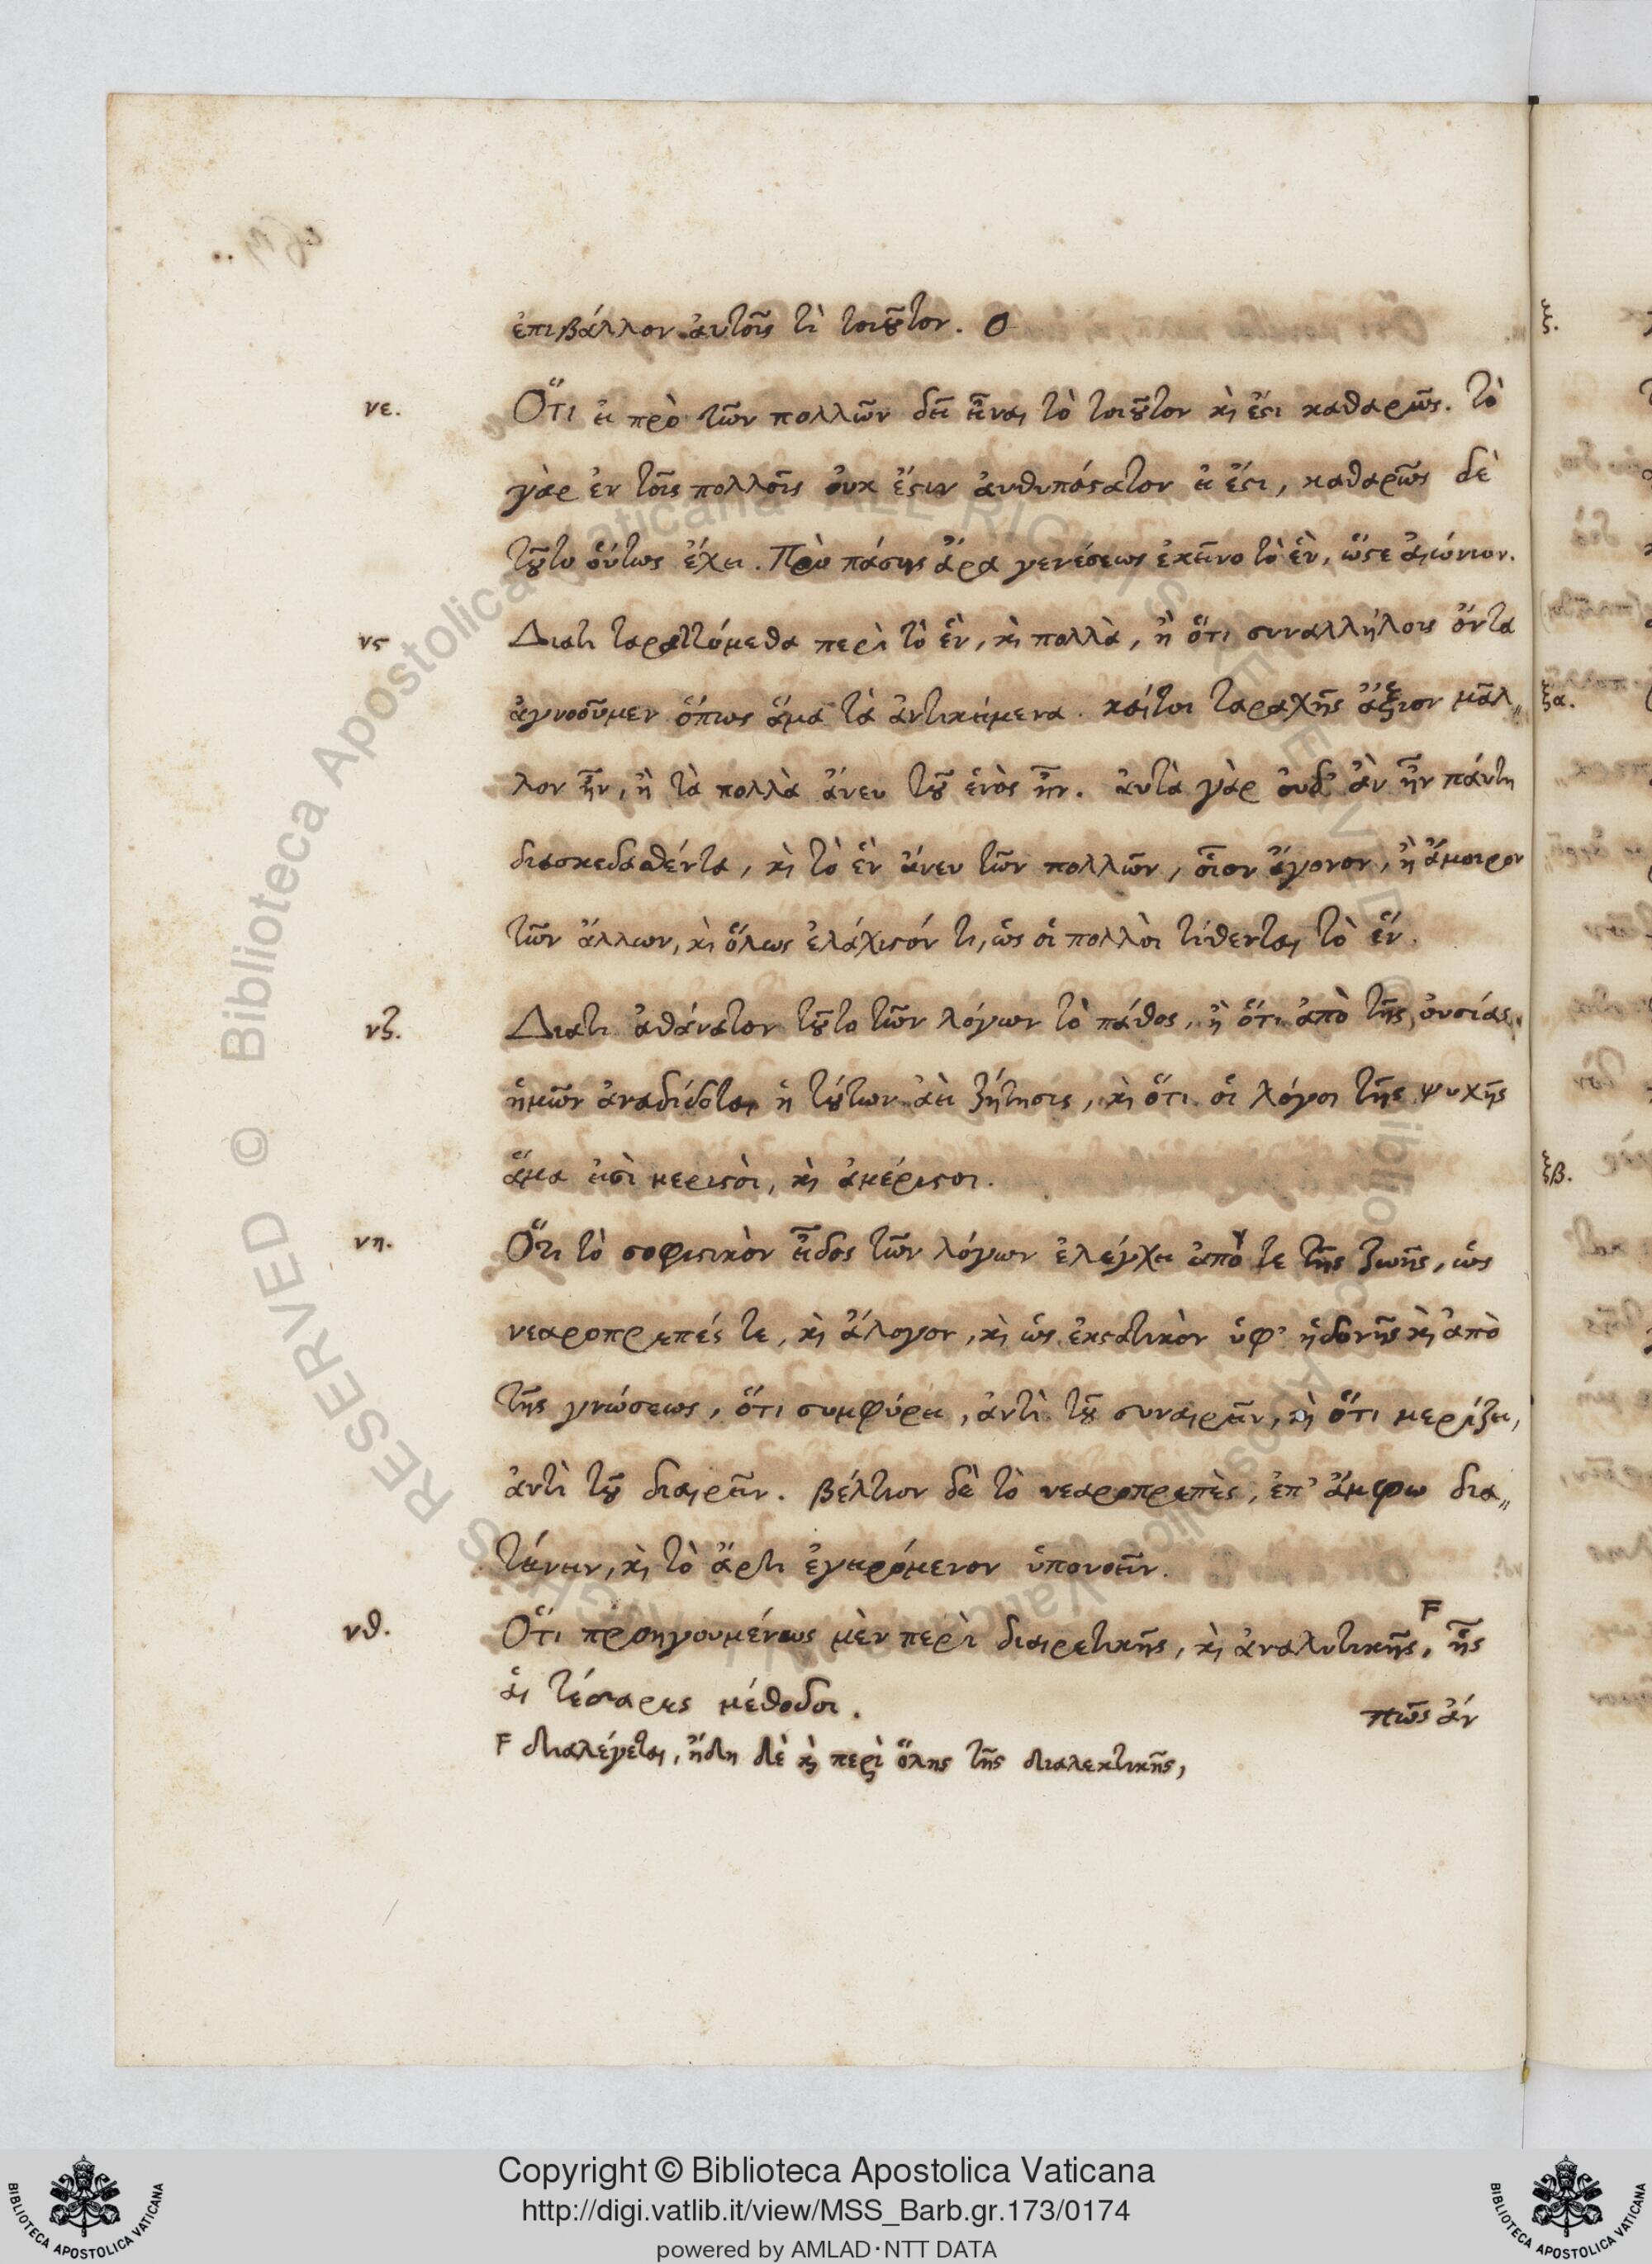 ἐπιβάλλον αὐτοῖς τὶ τοιοῦτον. Ο
νε. Ὅτι εἰ πρὸ τῶν πολλῶν δεῖ εἶναι τὸ τοιοῦτον κ̀ ἔϛι καθαρῶς. τὸ
γὰρ ἐν τοῖς πολλοῖς οὐκ ἔϛιν ἀυθυπόϛατον εἰ ἔϛι, καθαρῶς δὲ
τοῦτο οὕτως ἔχει. Πρὸ πάσης ἄρα γενέσεως ἐκεῖνο τὸ ἓν, ὥϛε αἰώνιον.
νϛ Διατι ταραττόμεθα περὶ τὸ ἓν, κ̀ πολλὰ, ἢ ὅτι συναλλήλοις ὄντα
ἀγνοοῦμεν ὅπως ἅμα τὰ ἀντικείμενα. καίτοι ταραχῆς ἄξιον μᾶλ„
λον ἦν, ἢ τὰ πολλὰ ἄνευ τοῦ ἑνὸς ἦν. ἀυτὰ γὰρ οὐδ' ἂν ἦν πάντη
διασκεδαθέντα, κ̀ τὸ ἓν ἄνευ τῶν πολλῶν, οἷον ἄγονον, ἢ ἄμοιρον
τῶν ἄλλων, κ̀ ὅλως ἐλάχιϛόν τι, ὡς οἱ πολλοὶ τίθενται τὸ ἕν.
νζ. Διατι ἀθάνατον τοῦτο τῶν λόγων τὸ πάθος, ἢ ὅτι ἀπὸ τῆς οὐσίας
ἡμῶν ἀναδίδοται ἡ τούτων ἀεὶ ζήτησις, κ̀ ὅτι οἱ λόγοι τῆς ψυχῆς
ἅμα εἰσὶ μεριϛοὶ, κ̀ ἀμέριϛοι.
νη. Ὅτι τὸ σοφιϛικὸν εἶδος τῶν λόγων ἐλέγχει ἀπό τε τῆς ζωῆς, ὡς
νεαροπρεπές τε, κ̀ ἄλογον, κ̀ ὡς ἐκϛατικὸν ὑφ' ἡδονῆς κ̀ ἀπὸ
τῆς γνώσεως, ὅτι συμφύρει, ἀντὶ τοῦ συναιρεῖν, κ̀ ὅτι μερίζει,
ἀντὶ τοῦ διαιρεῖν. βέλτιον δὲ τὸ νεαροπρεπὲς, ἐπ' ἄμφω δια„
τείνειν, κ̀ τὸ ἄρτι ἐγειρόμενον ὑπονοεῖν.
νθ. Ὅτι προηγουμένως μὲν περὶ διαιρετικῆς, κ̀ ἀναλυτικῆς, F ἧς
αἱ τέσσαρες μέθοδοι.
πῶς ἀν
F διαλέγεται, ἤδη δὲ κ̀ περὶ ὅλης τῆς διαλεκτικῆς,
ξ.
ξα.
ξβ.
Copyright © Biblioteca Apostolica Vaticana
http://digi.vatlib.it/view/MSS_Barb.gr.173/0174
powered by AMLAD·NTT DATA